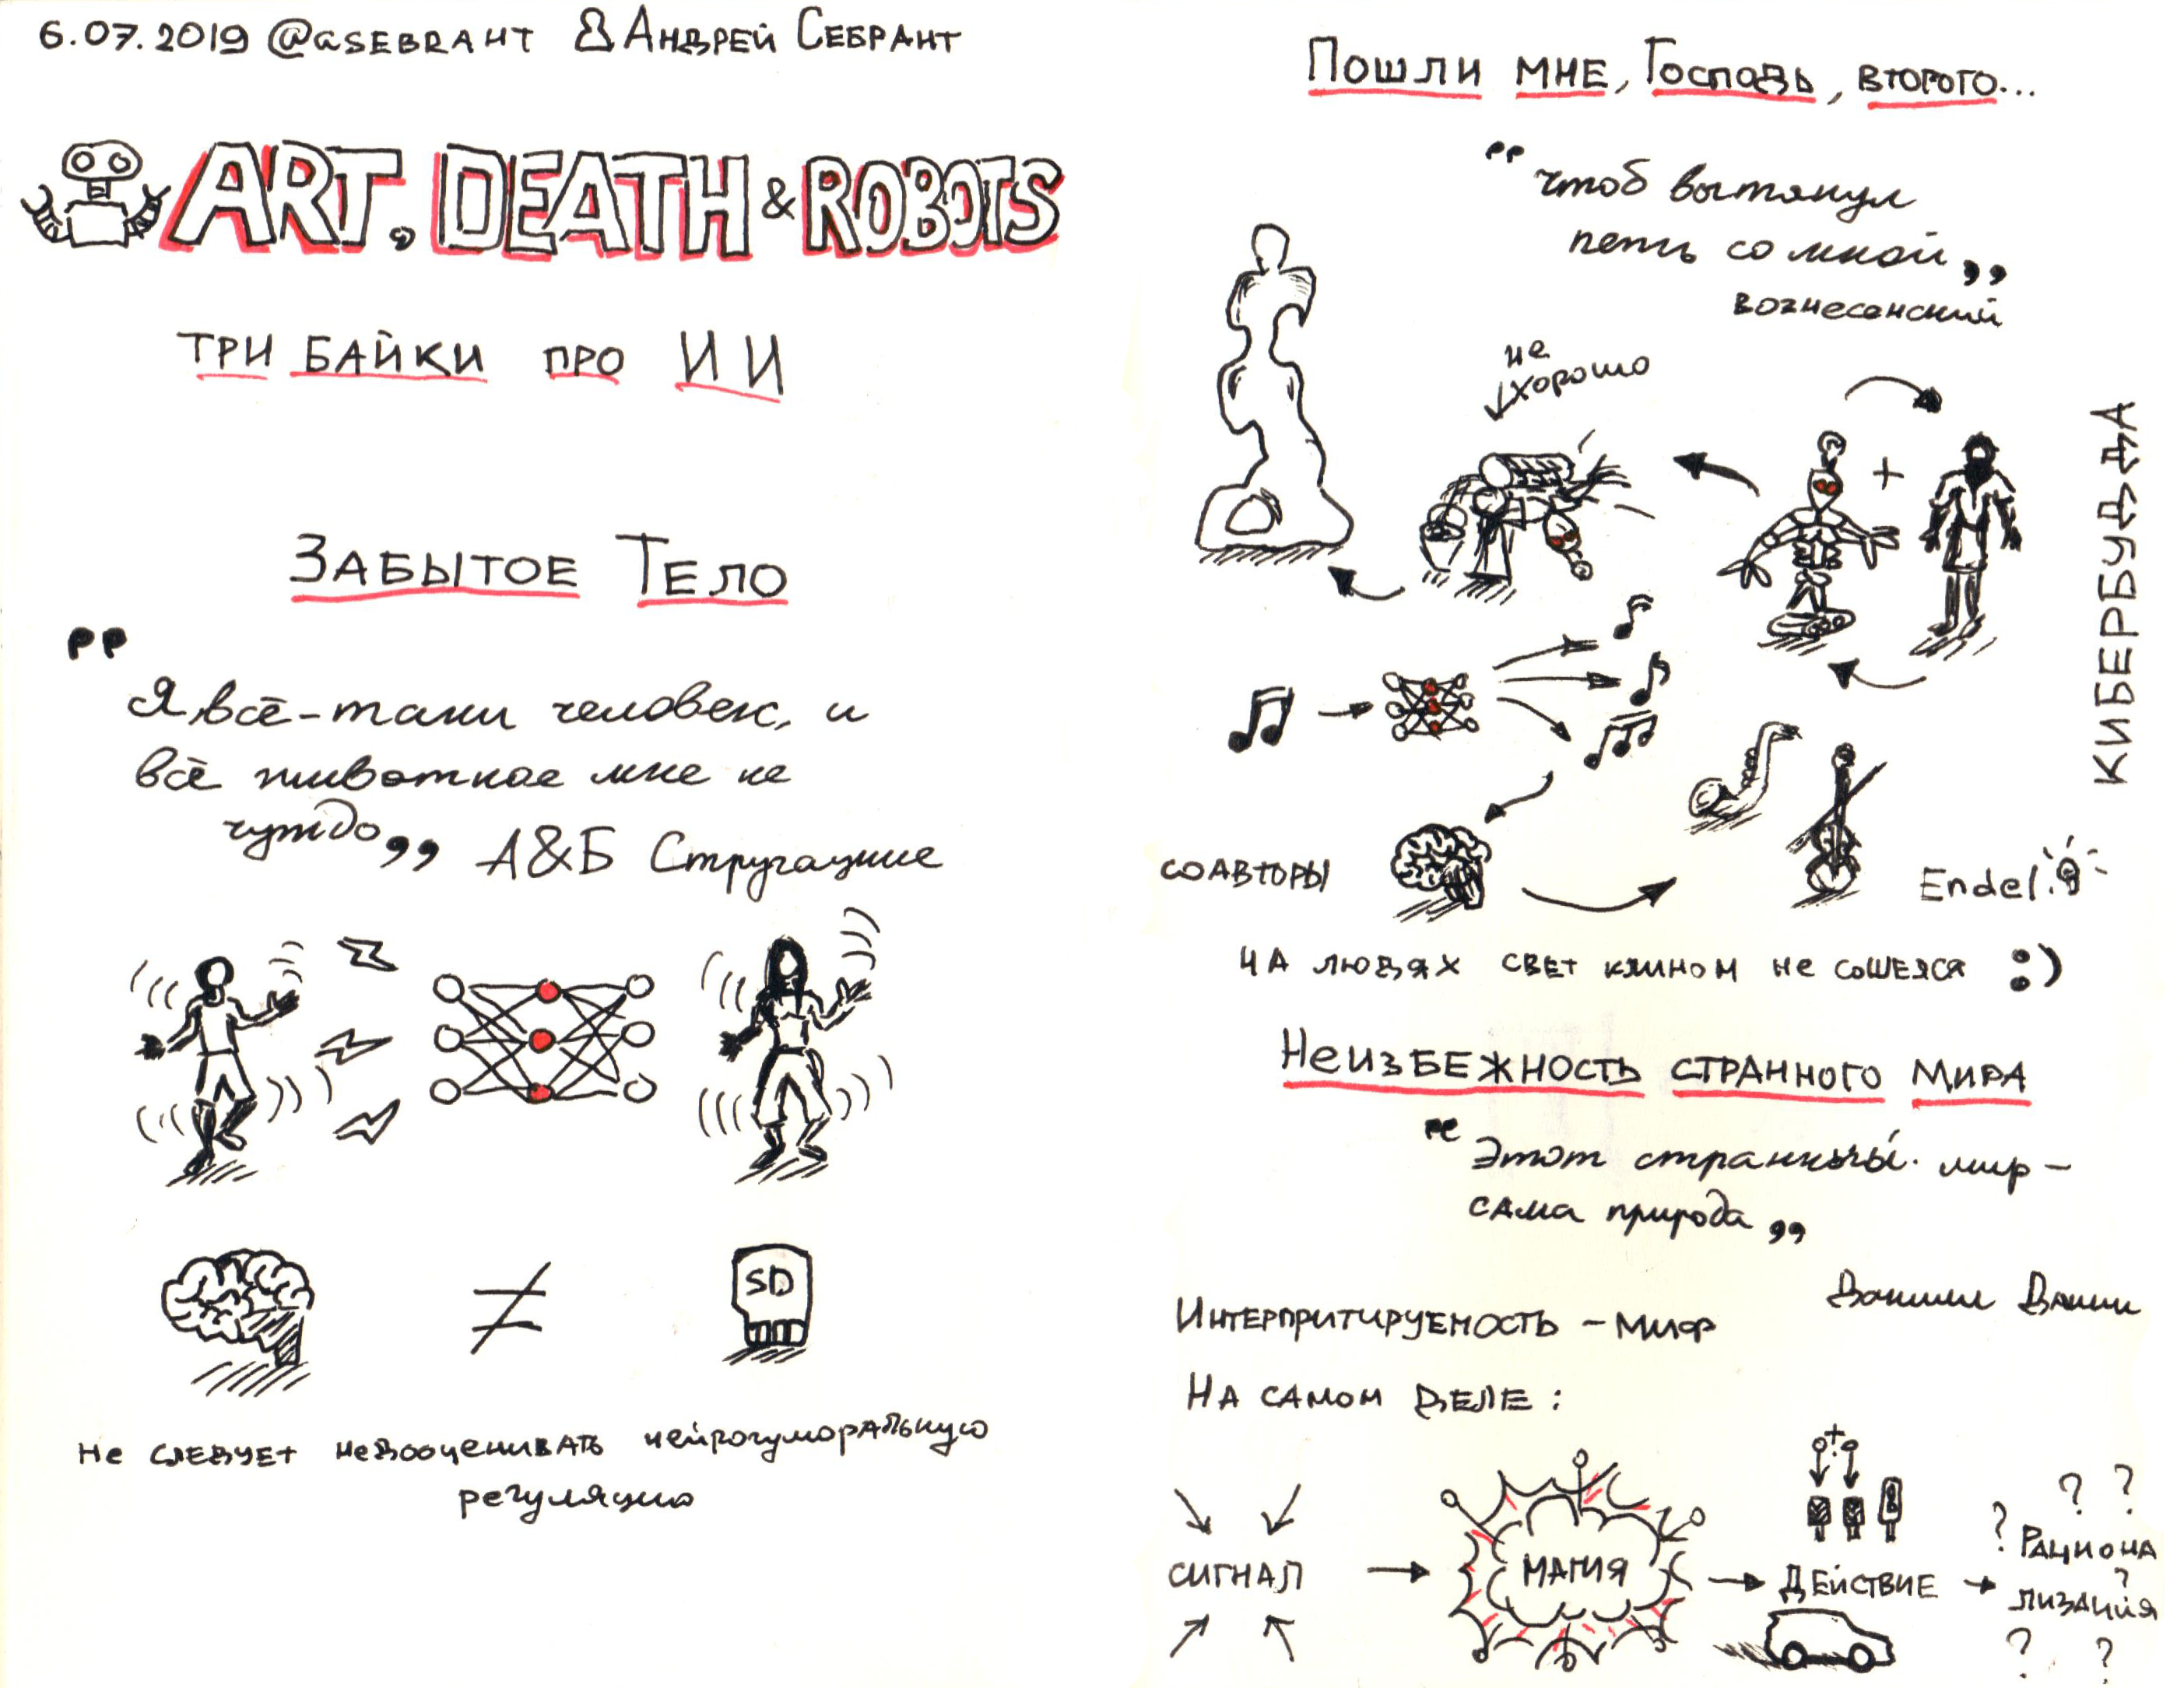 6.07.2019 @asebrant Андрей Себрант
ART, DEATH & ROBOTS
ТРИ БАЙКИ ПРО ИИ
ЗАБЫТОЕ ТЕЛО
"Я всё-таки человек, и
всё животное мне не
чуждо" А&Б Стругацкие
SD
Не следует недооценивать нейрогуморальную
регуляцию
Пошли мне, Господь, второго...
"чтоб вытянул
петь со мной"
вознесенский
не
хорошо
+
КИБЕРБУДДА
соавторы
Endel
на людях свет клином не сошелся :)
Неизбежность странного мира
"Этот странный мир -
сама природа"
Даниил Данин
Интерпритируемость - миф
На самом деле:
+
сигнал → магия → Действие → ? ? ? Рациона
? лизация
? ?